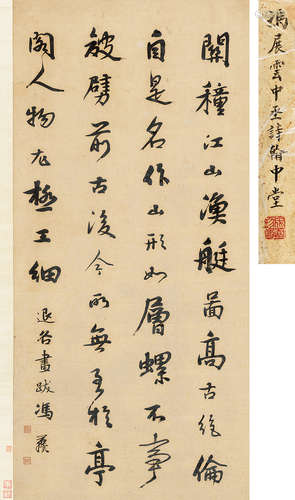 關穜江山漁艇圖高古絕倫
自是名作山形如層螺不事
皴劈前古後今所無至於亭
閣人物尤極工細
退谷畫跋 馮譽驥
馮展雲中丞詩翰中堂